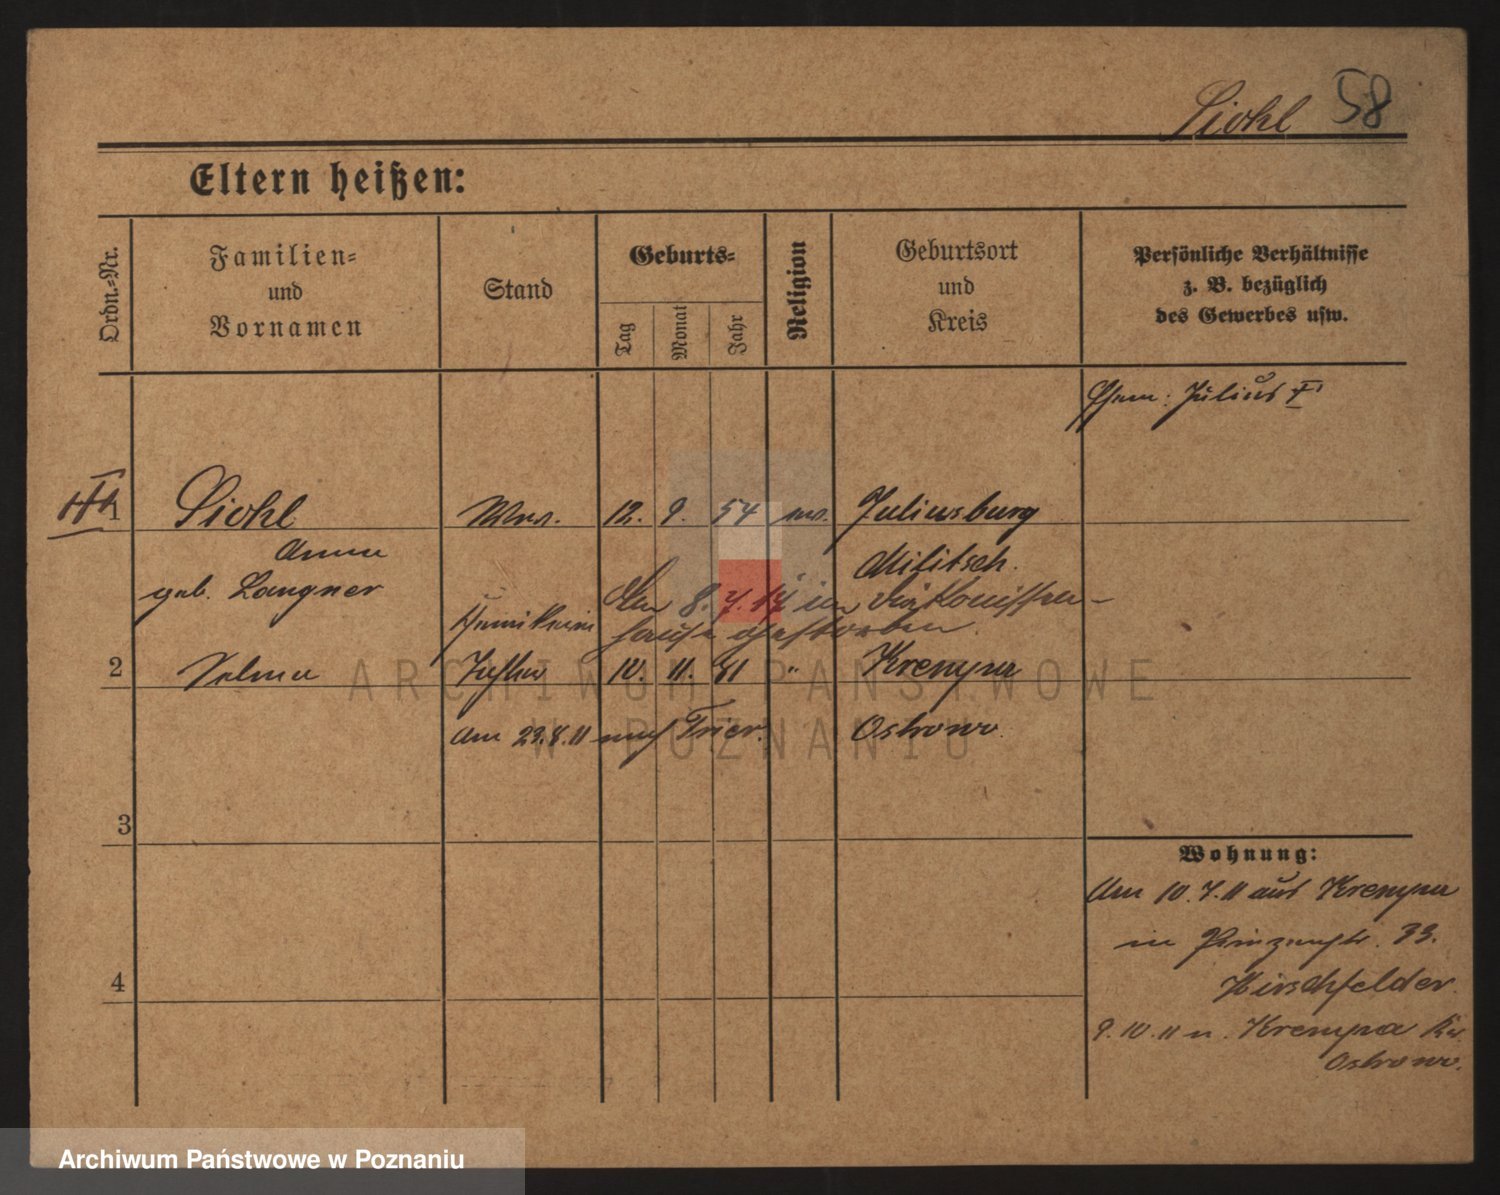 Siohl 58
Eltern heißen:
Ordn.-Nr.
Familien-
und
Vornamen
Stand
Geburts-
Tag
Monat
Jahr
Religion
Geburtsort
und
Kreis
Persönliche Verhältnisse
z. B. bezüglich
des Gewerbes usw.
Ehem: Julius
1 Siohl Wwe. 12. 9. 54 ev. Juliusburg
Anna Militsch.
geb. Langner
Am 8. 7. 14 in Diakonissen-
hause gestorben.
2 Selma Tochter 10. 11. 81 " Krempa
am 23.8.11 nach Trier. Ostrowo.
3
4
Wohnung:
Am 10.7.11 aus Krempa
in Prinzenstr. 33.
Hirschfelder.
9.10.11 n. Krempa Kr.
Ostrowo.
ARCHIWUM PAŃSTWOWE
W POZNANIU
Archiwum Państwowe w Poznaniu